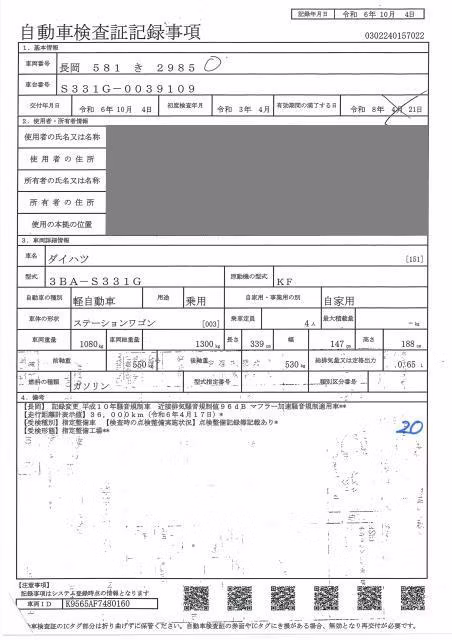 記録年月日 令和 6年10月 4日
自動車検査証記録事項
0302240157022
1. 基本情報
車両番号 長岡 581 き 2985
車台番号 S331G-0039109
交付年月日 令和 6年10月 4日 初度検査年月 令和 3年 4月 有効期間の満了する日 令和 8年 4月 21日
2. 使用者・所有者情報
使用者の氏名又は名称
使用者の住所
所有者の氏名又は名称
所有者の住所
使用の本拠の位置
3. 車両詳細情報
車名 ダイハツ [151]
型式 3BA-S331G 原動機の型式 KF
自動車の種別 軽自動車 用途 乗用 自家用・事業用の別 自家用
車体の形状 ステーションワゴン [003] 乗車定員 4人 最大積載量 -kg
車両重量 1080kg 車両総重量 1300kg 長さ 339cm 幅 147cm 高さ 188cm
前軸重 550kg 後軸重 530kg 総排気量又は定格出力 0.65 L
燃料の種類 ガソリン 型式指定番号 類別区分番号
4. 備考
【長岡】 記録変更,平成10年騒音規制車 近接排気騒音規制値96dB マフラー加速騒音規制適用車**
【走行距離計表示値】36,000km(令和6年4月17日)*
【受検種別】指定整備車 【検査時の点検整備実施状況】点検整備記録簿記載あり*
【受検形態】指定整備工場**
20
【注意事項】
記録事項はシステム登録時点の情報となります
車両ID K9565AF7480160
車検査証のICタグ部分は折り曲げずに保管ください。自動車検査証の券面やICタグに き損がある場合、無効となり再交付が必要です。